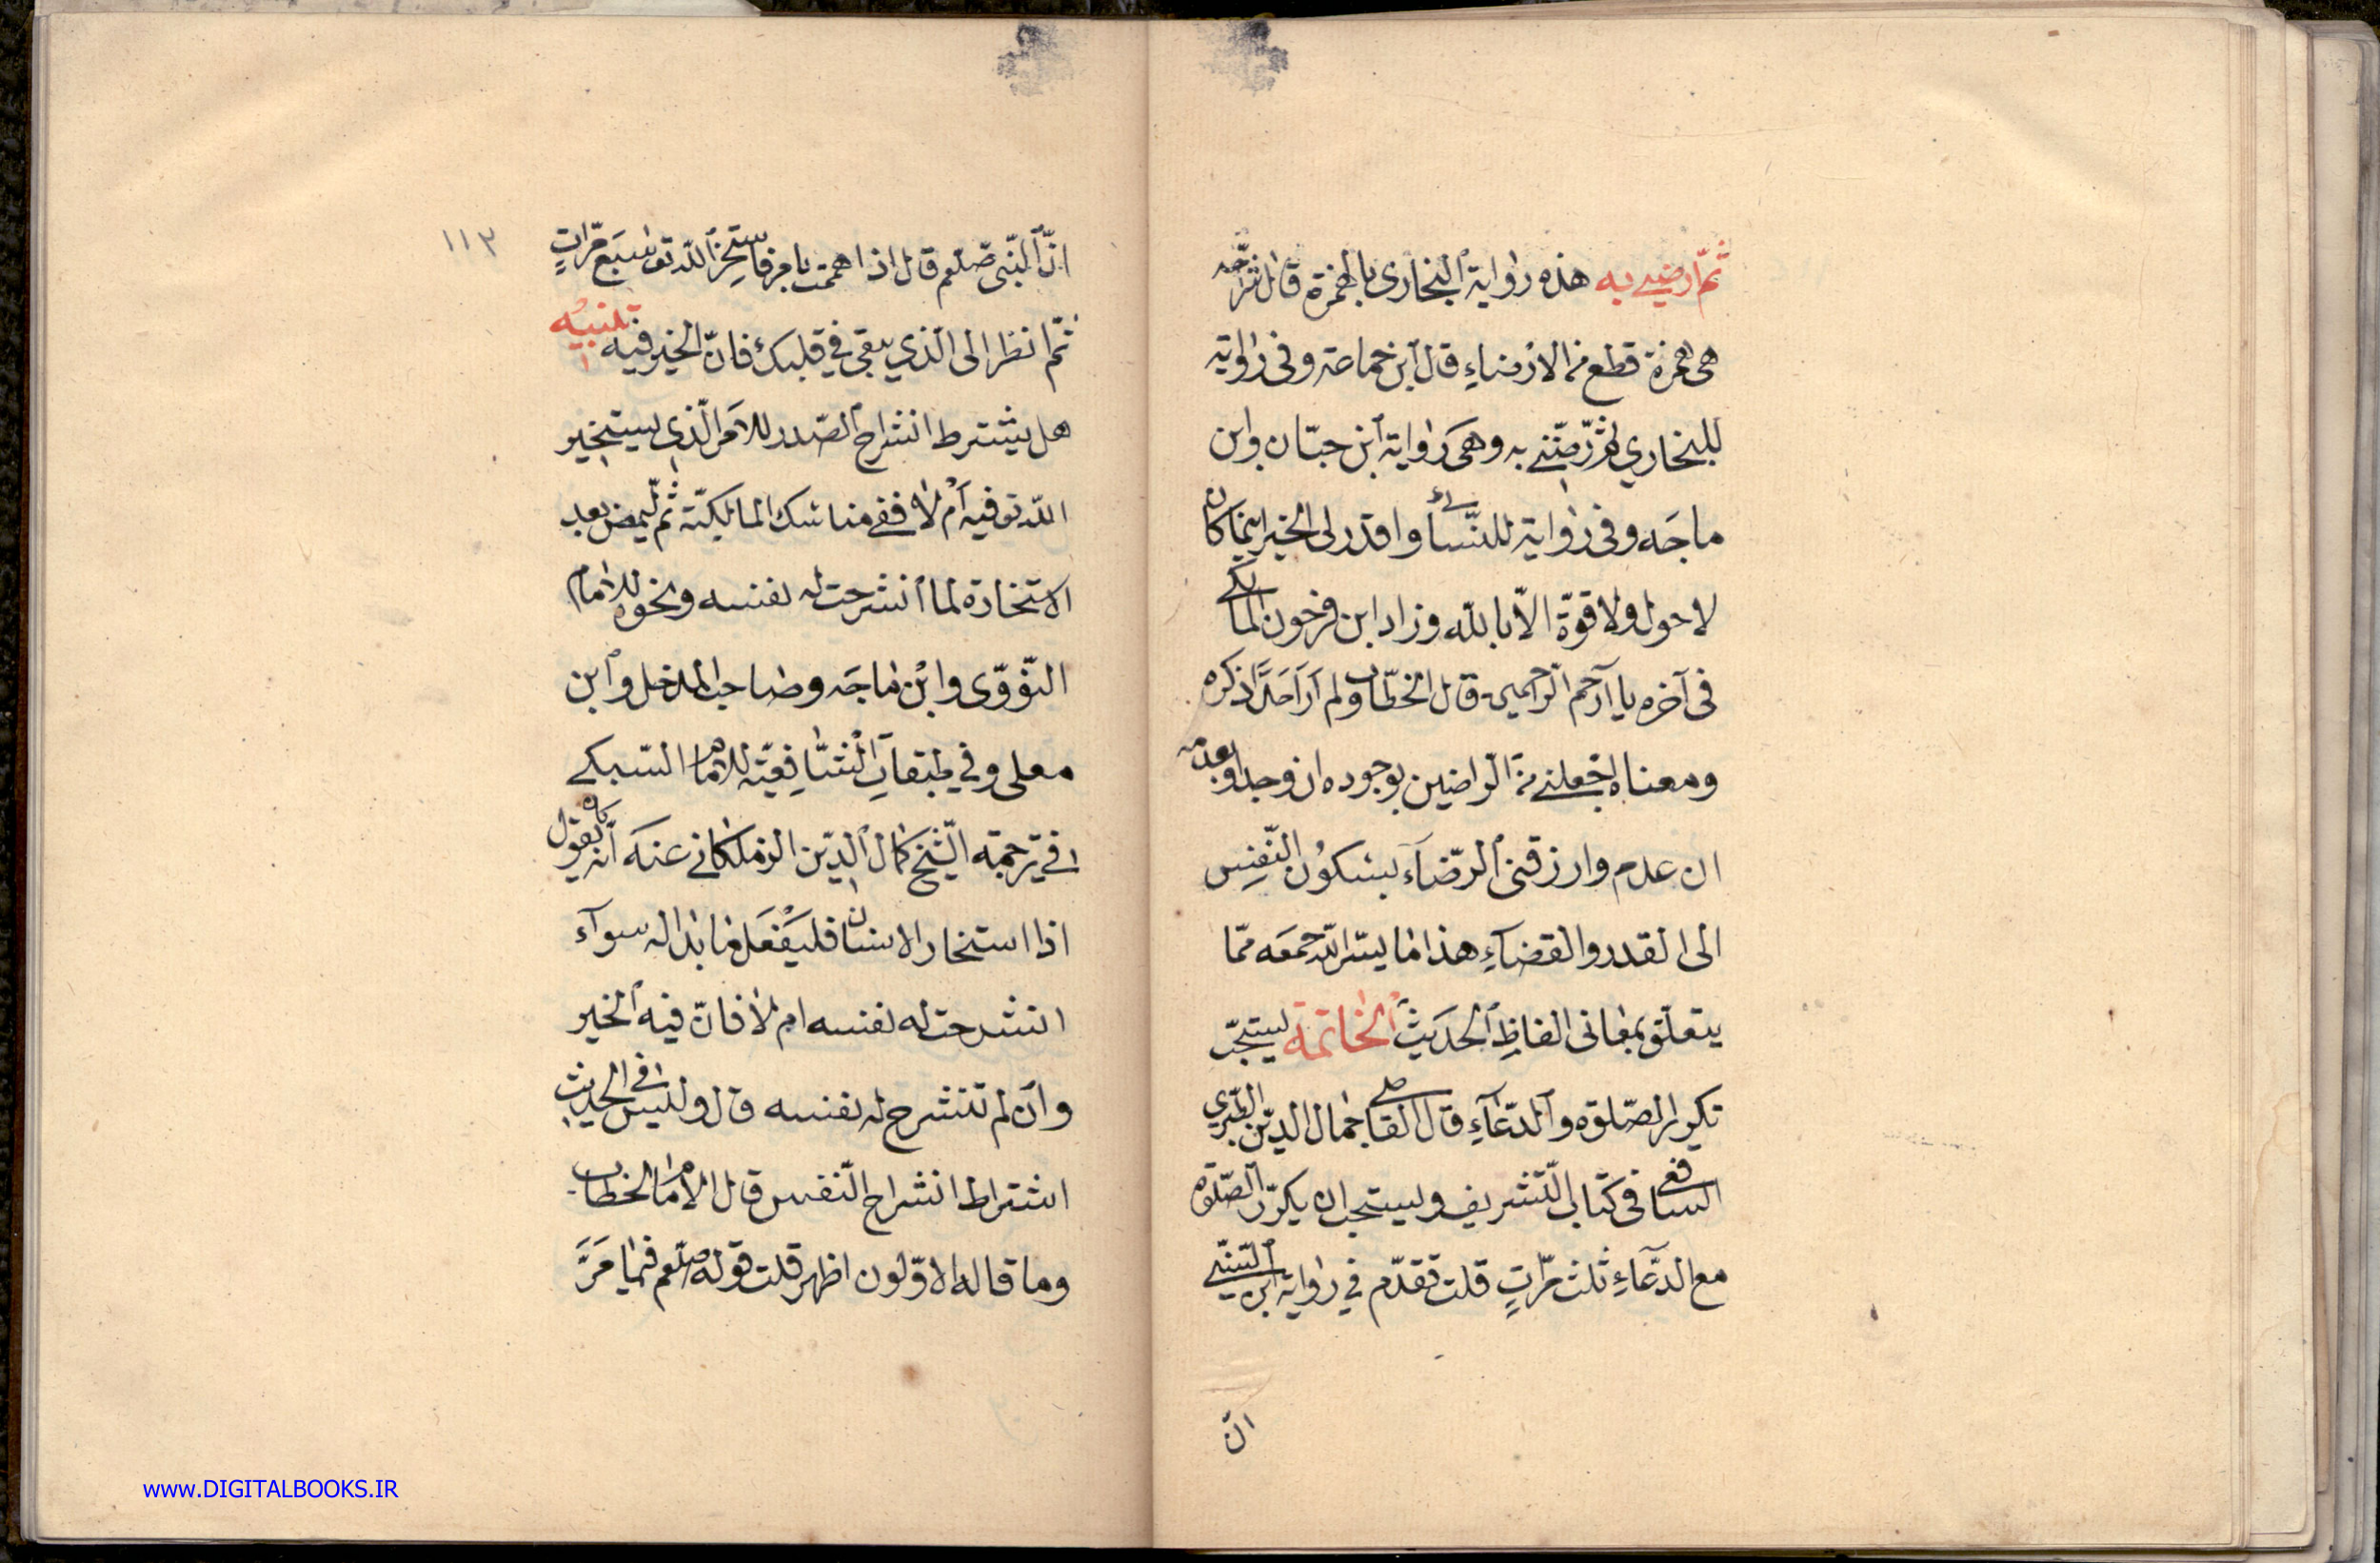 ثمّ ارضني به هذه رواية البخارى بالهمزة قال شراحه
هى همزة قطع من الارضاء قال ابن جماعة وفى رواية
للبخاري ثم رضّني به وهى رواية ابن حبّان وابن
ماجه وفى رواية للنّسائي واقدر لى الخير اينما كان
لا حول ولا قوّة الّا بالله وزاد ابن فرحون المالكي
فى آخره يا ارحم الرّاحمين قال الخطّاب ولم ار احدًا ذكره
ومعناه اجعلني من الراضين بوجوده ان وجد او بعدمه
ان عدم وارزقنى الرّضآء بسكون النّفس
الى القدر والقضآء هذا ما يسّر الله جمعه ممّا
يتعلّق بمعانى الفاظ الحديث الخاتمة يستحبّ
تكرار الصّلوة والدّعآء قال القاضى جمال الدين الطّبري
الشافعى فى كتاب التّشريف ويستحب ان يكرّر الصّلوة
مع الدّعآء ثلث مرّات قلت تقدّم في رواية ابن السّنّي
انّ
١١٣
انّ النّبى صلعم قال اذا هممت بامر فاستخر الله تع سبع مرّات
ثمّ انظر الى الّذي يبقى في قلبك فانّ الخير فيه تنبيه
هل يشترط انشراح الصّدر للامر الّذي يستخير
الله تع فيه ام لا ففى مناسك المالكيّة ثم ليمض بعد
الاستخارة لما انشرحت له نفسه ونحوه للامام
النّووى وابن ماجه وصاحب المدخل وابن
معلى وفي طبقات الشّافعيّة للامام السّبكي
في ترجمة الشّيخ كمال الدّين الزملكانى عنه انّه كان يقول
اذا استخار الانسان فليفعل ما بدا له سوآء
انشرحت له نفسه ام لا فانّ فيه الخير
وان لم تنشرح له نفسه قال وليس فى الحديث
اشتراط انشراح النّفس قال الامام الخطاب
وما قاله الاوّلون اظهر قلت قوله صلعم فيما مرّ
www.DIGITALBOOKS.IR